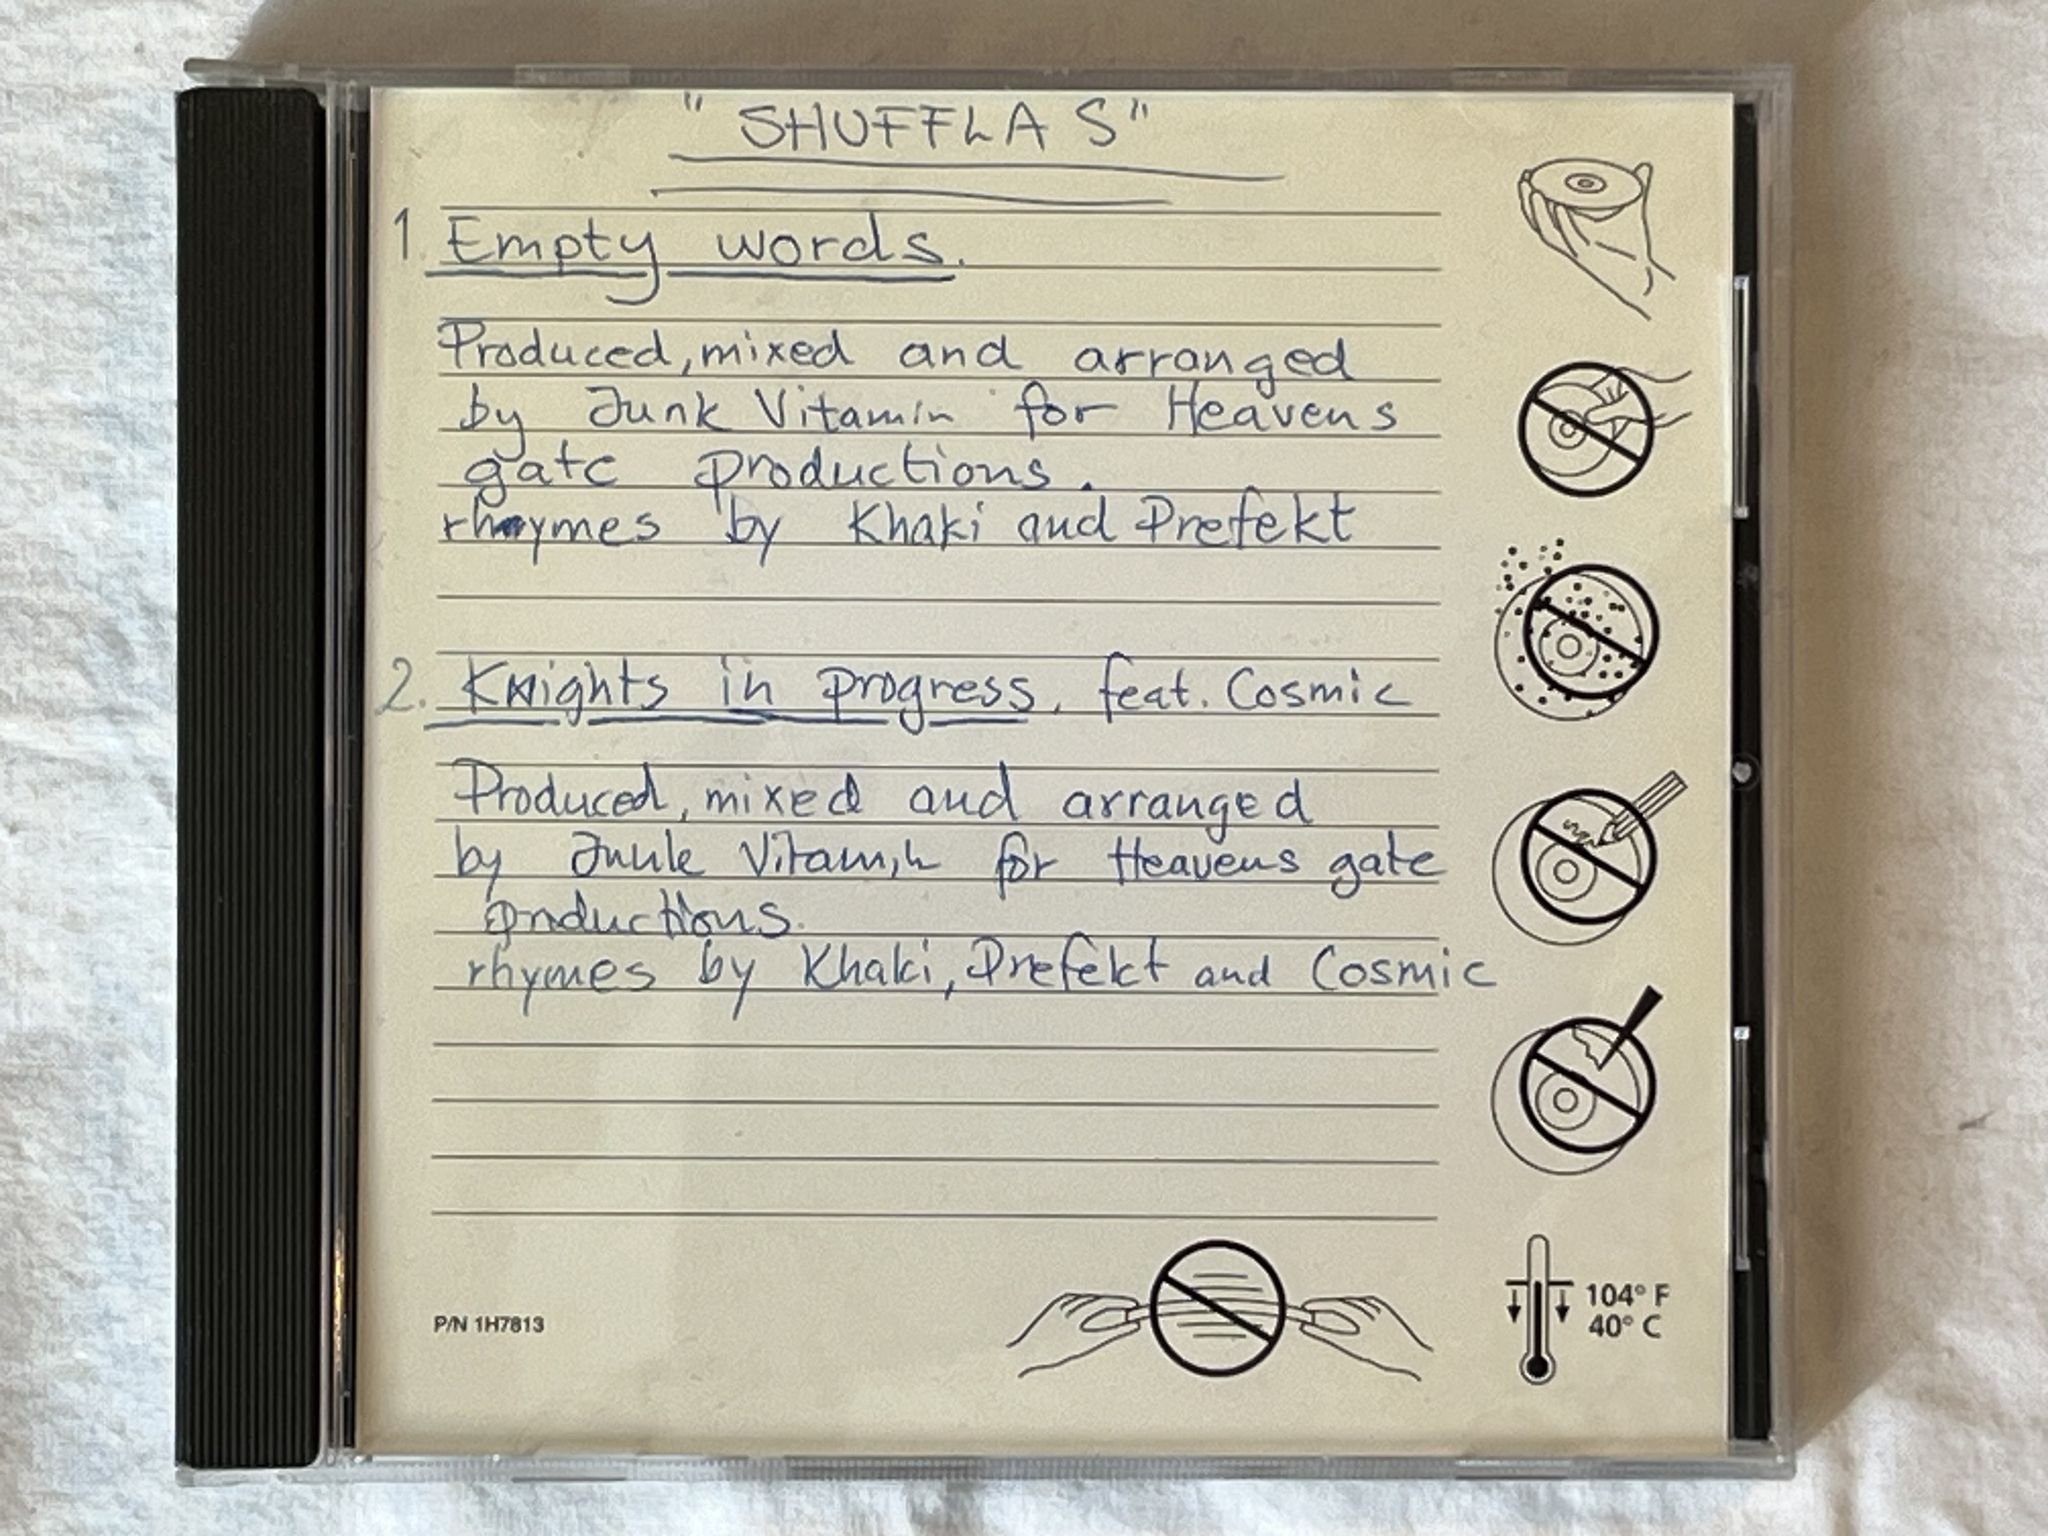 "SHUFFLA S"
1. Empty words.
Produced, mixed and arranged
by Junk Vitamin for Heavens
gate productions.
rhymes by Khaki and Prefekt
2. Knights in progress, feat. Cosmic
Produced, mixed and arranged
by Junk Vitamin for Heavens gate
productions.
rhymes by Khaki, Prefekt and Cosmic
104° F
40° C
P/N 1H7813